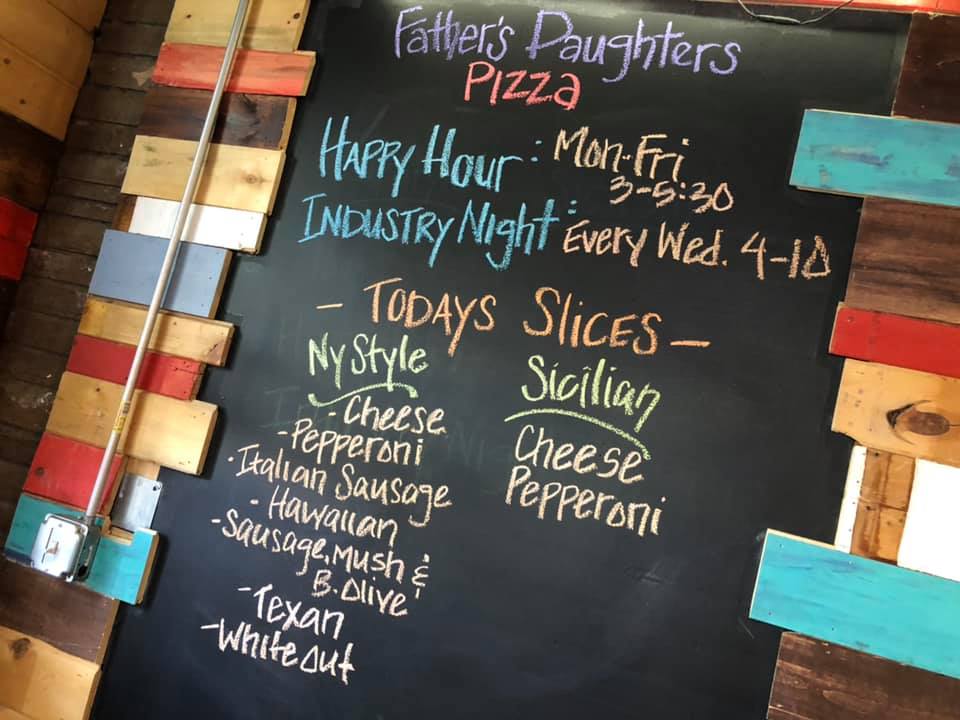 Father's Daughters
Pizza
Happy Hour: Mon-Fri
3-5:30
Industry Night: Every Wed. 4-10
- Todays Slices -
Ny Style
- Cheese
- Pepperoni
- Italian Sausage
- Hawaiian
- Sausage, Mush &
B. Olive
- Texan
- White out
Sicilian
Cheese
Pepperoni